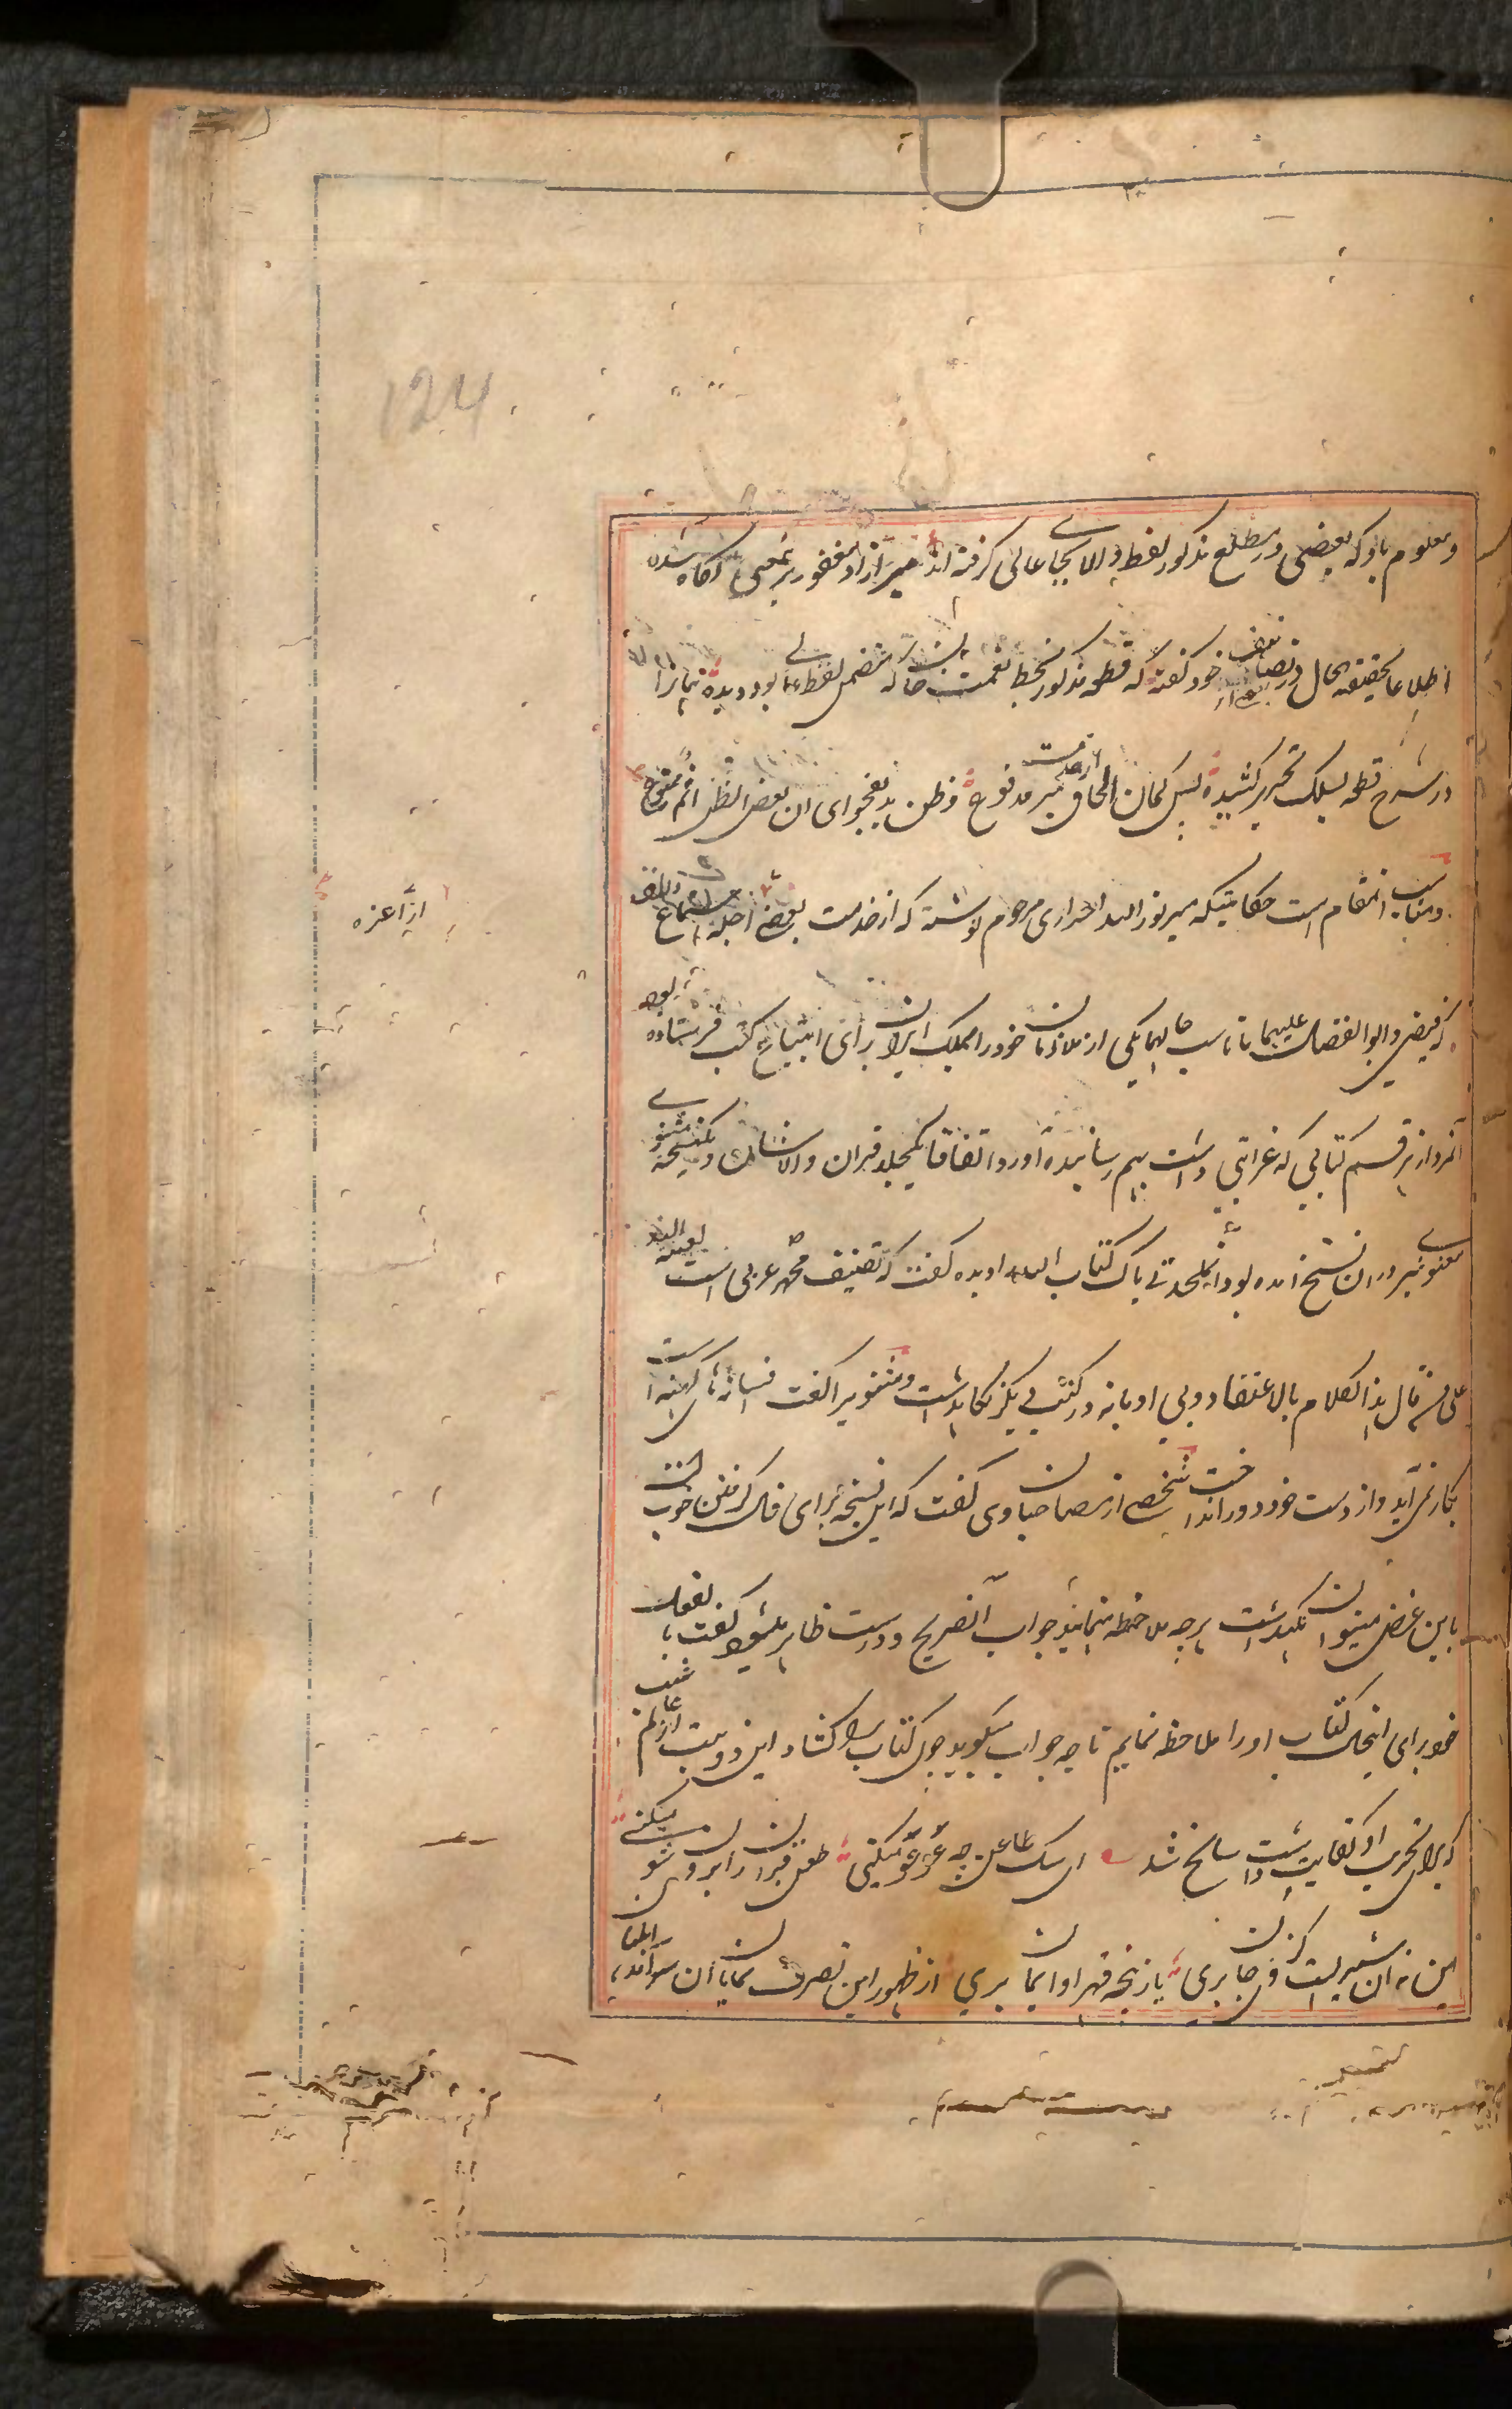 124
و معلوم باد که بعضی در مطلع مذکور لفظ والای بجای عالی گرفته اند میر آزاد مغفور بر معنی آگاه شده
اطلاعا بحقیقه الحال در تصانیف خود گفته که قطعه مذکور بخط نعمت خان که متضمن لفظ بود دیده
در شرح قطعه بسلک تحریر کشیده پس گمان الحاق از خدمت میر مدفوع و ظن بد بفحوای ان بعض الظن اثم ممنوع
و مناسب انمقام است حکایتیکه میر نورالله احراری مرحوم نوشته که از خدمت بعضی اجله استماع
از اعزه
که فیضی و ابوالفضل علیهما ما یناسب حالهما یکی از ملازمان خود را بملک ایران برای ابتیاع کتب فرستاده بود
آنمرد از هر قسم کتابی که غرابتی داشت بهم رسانیده آورد اتفاقا یکجلد قرآن والاشان و یکنسخه مثنوی
معنوی نیز دران نسخ آمده بود انملحد بی باک کتاب الله را دیده گفت که تصنیف محمد عربی است لعنة الله
علی من قال هذا الکلام بالاعتقاد و بی ادبانه در کتب دیگر نگاهداشت و مثنوی را گفت فسانه های کهنه است
بکار نمی آید و از دست خود دور انداخت شخصی از مصاحبان وی گفت که این نسخه برای فال گرفتن خوب است
باین غرض میتوان نگهداشت هرچه ملاحظه مینمایند جواب آن صریح و درست ظاهر میشود گفت بفعل
خود برای اینکه کتاب او را ملاحظه نمایم تا چه جواب میگوید چون کتاب را کشاد این دو بیت از عالم غیب
که برای تخریب او کفایت داشت سانح شد ای سگ طاعن چه عوعو میکنی طعن قرآن را برون شو میکنی
این نه آن شیریست کز وی جان بری یا ز پنجه قهر او ایمان بری از ظهور این تصرف نمایان